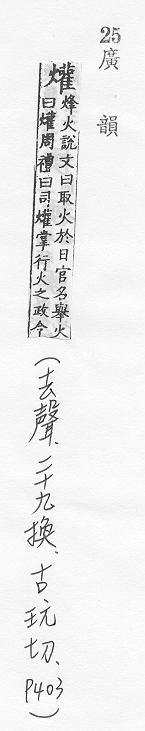 25
廣韻
爟
烽火說文曰取火於日官名舉火
曰爟周禮曰司爟掌行火之政令
(去聲、二十九換、古玩切、P403)